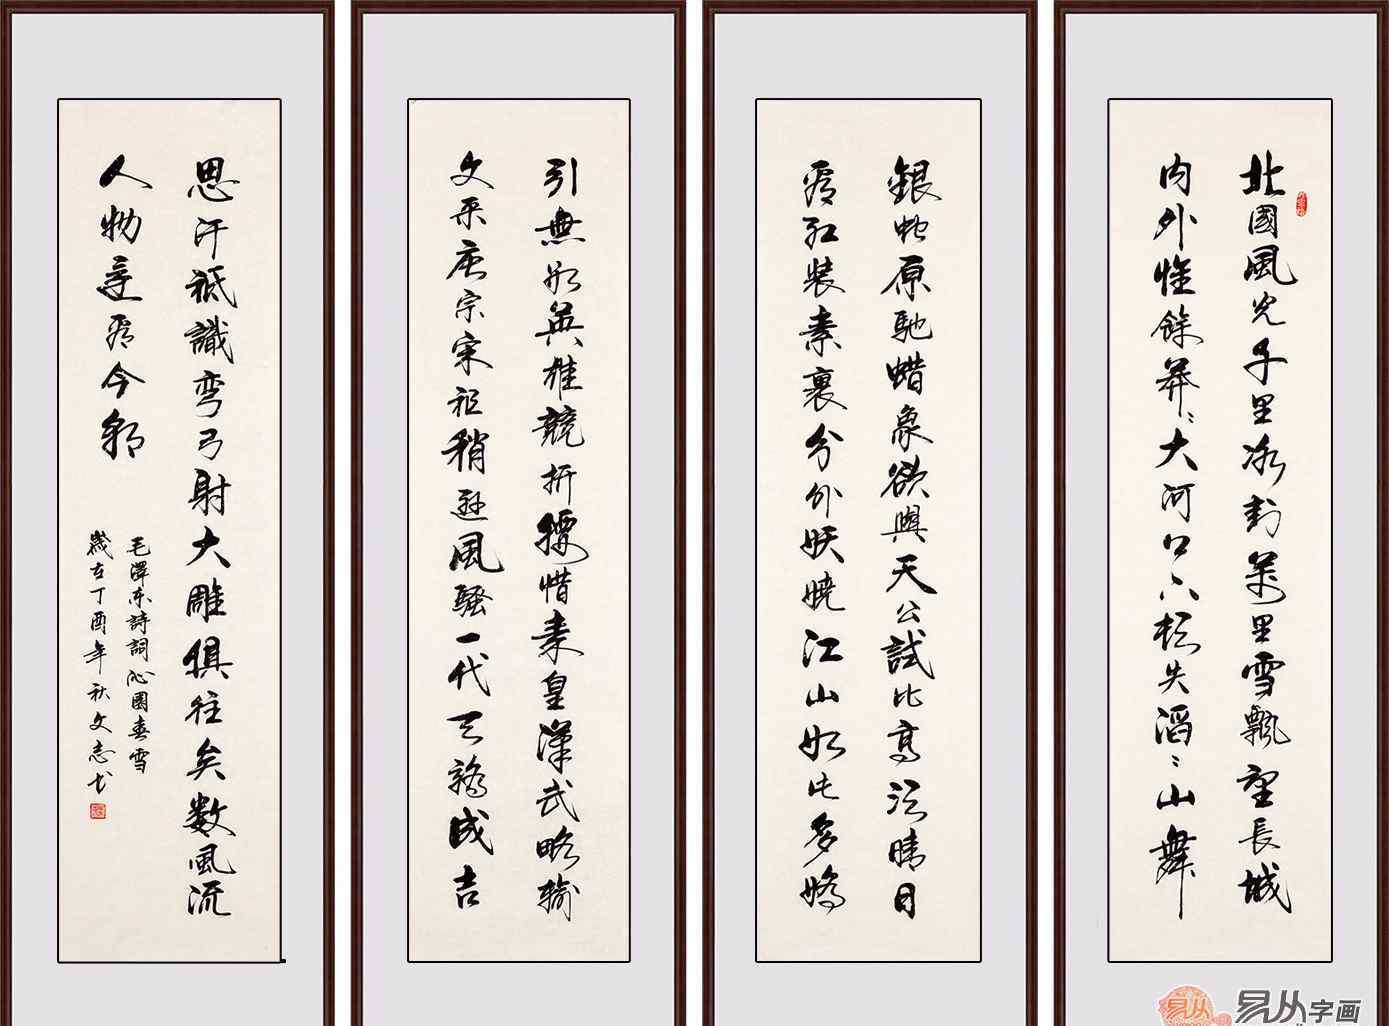 北國風光千里冰封萬里雪飄望長城
内外惟餘莽〻大河上下頓失滔〻山舞
銀蛇原馳蜡象欲與天公試比高須晴日
看紅裝素裹分外妖嬈江山如此多嬌
引無數英雄競折腰惜秦皇漢武略輸
文采唐宗宋祖稍遜風騷一代天驕成吉
思汗祗識弯弓射大雕俱往矣数風流
人物還看今朝
毛澤東詩詞沁園春雪
歲在丁酉年秋文志书
易从字画